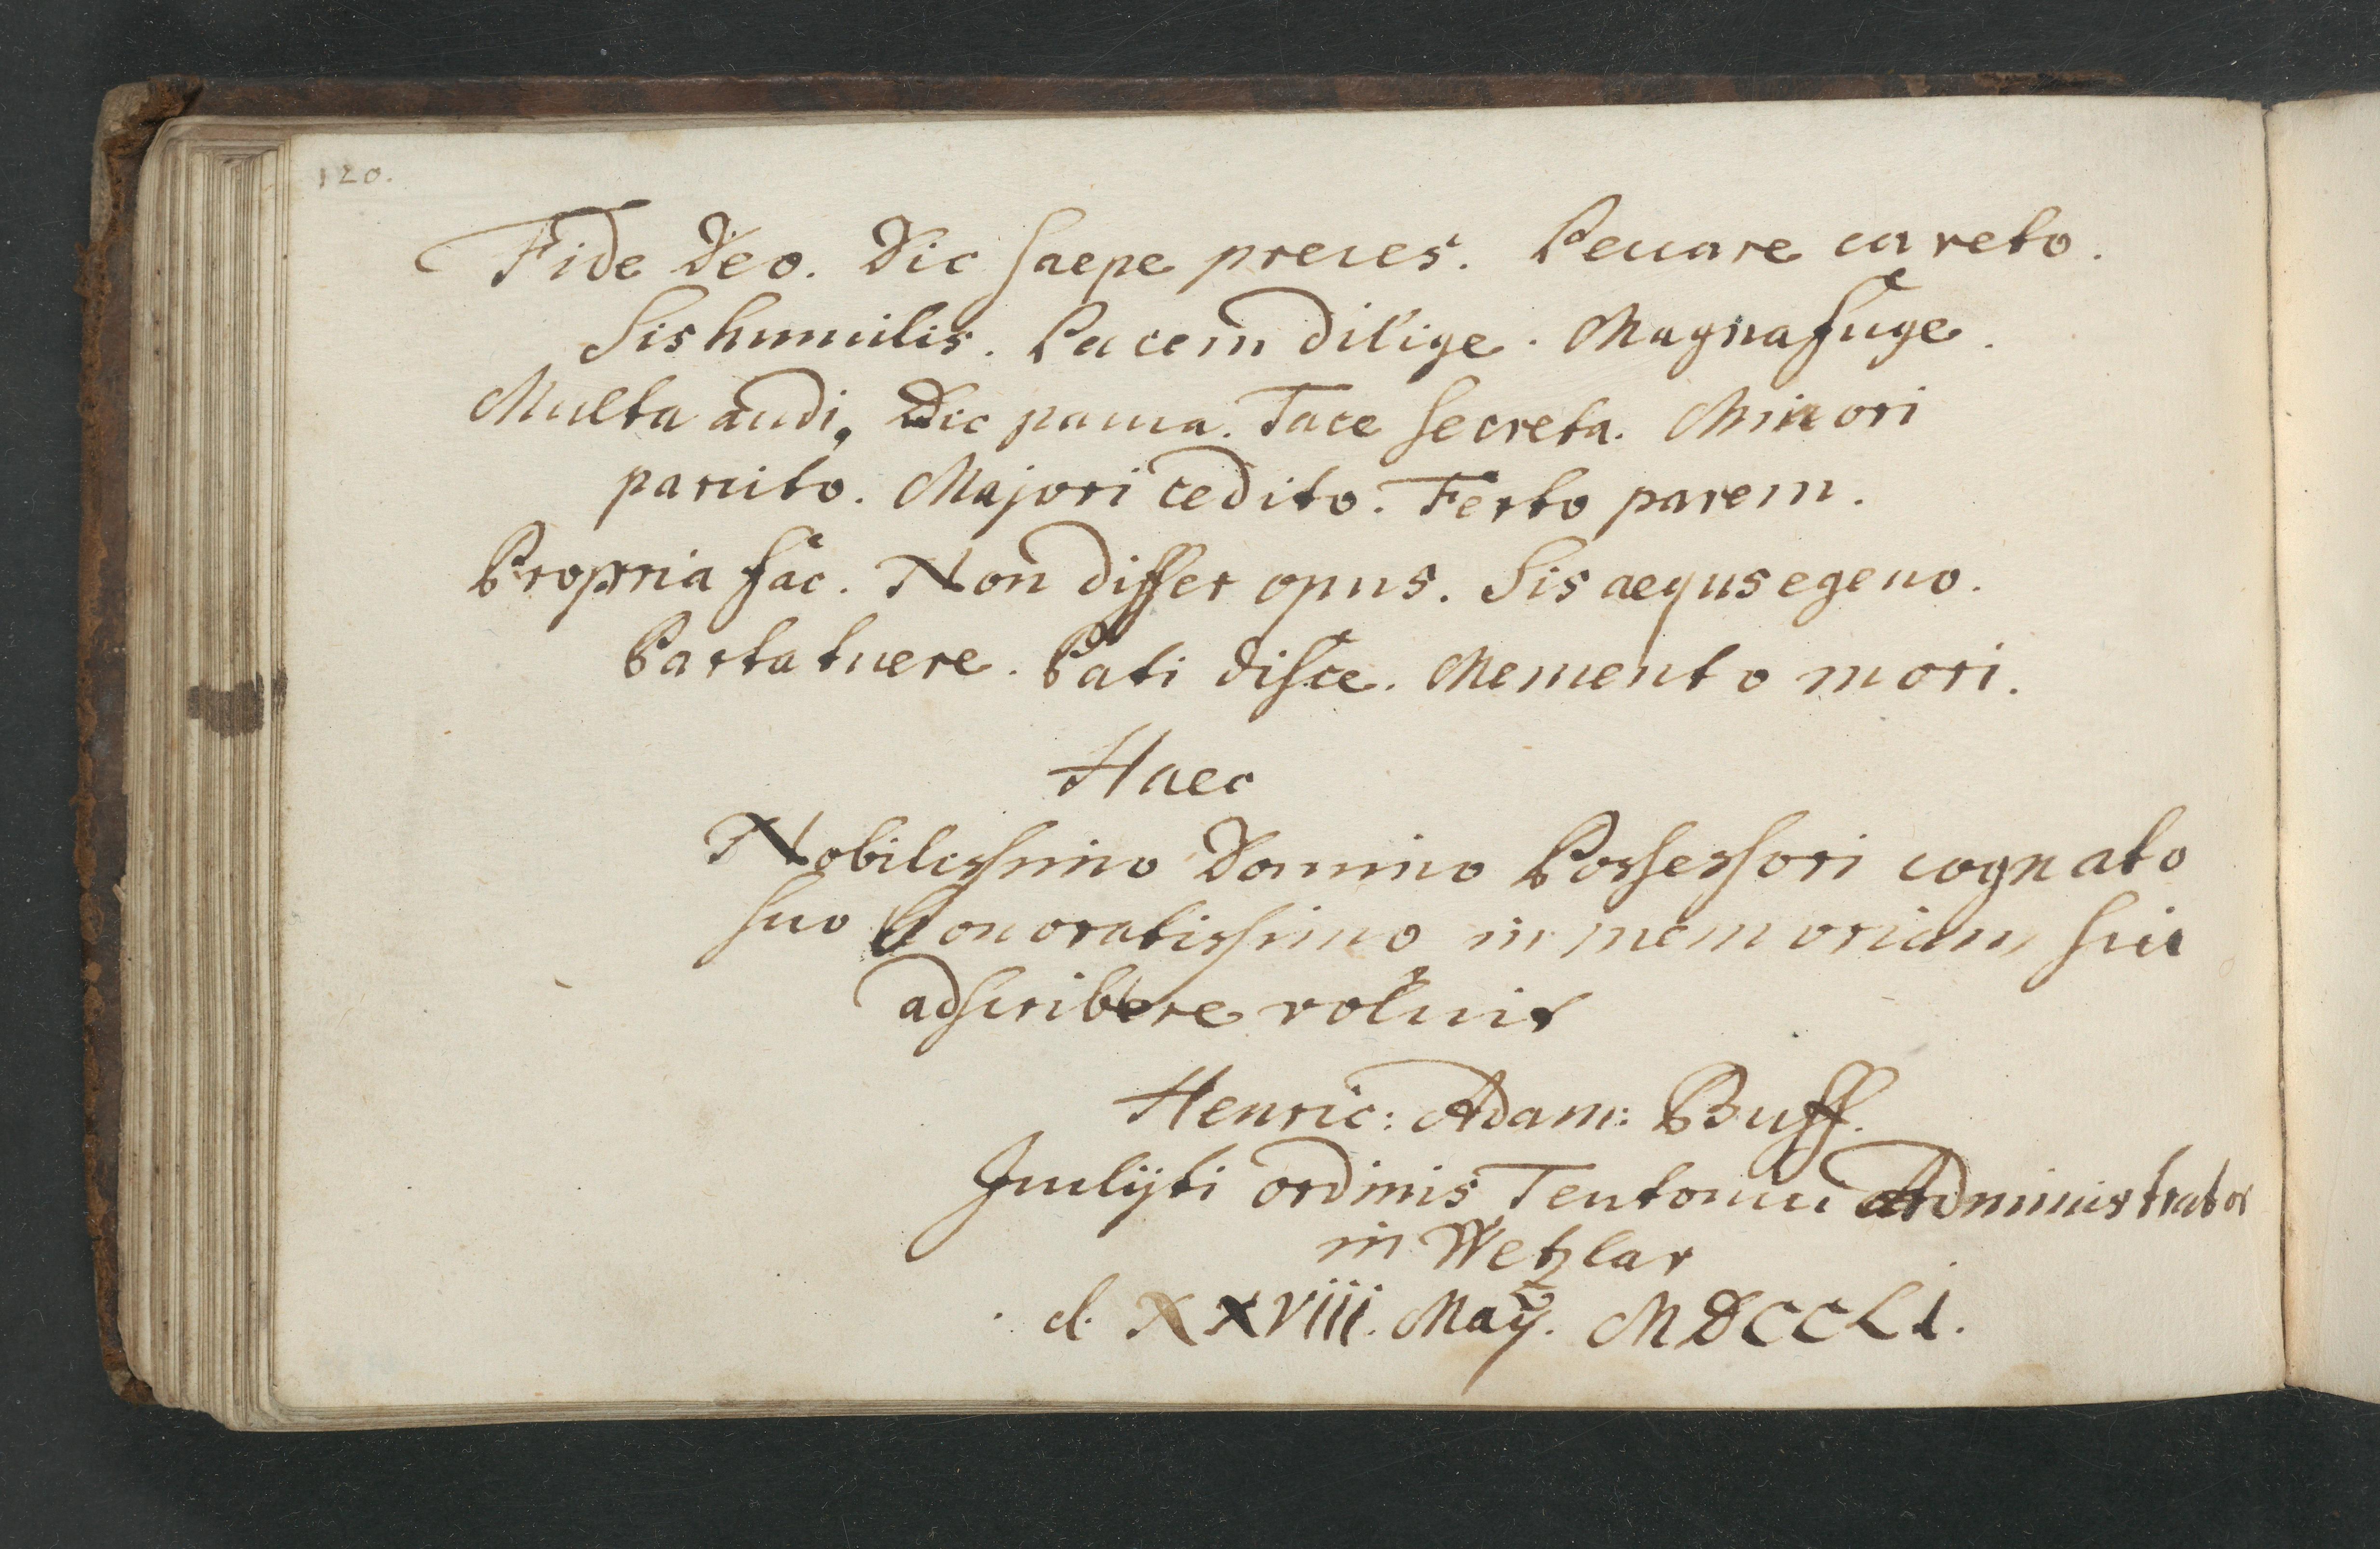 120.
Fide Deo. Dic saepe preces. Peccare caveto.
Sis humilis. Pacem dilige. Magna fuge.
Multa audi, Dic pauca. Tace secreta. Minori
parcito. Majori cedito. Ferto parem.
Propria fac. Non differ opus. Sis aequs egeno.
Parta tuere. Pati disce. Memento mori.
Haec
Nobilissimo Domino Possessori cognato
suo honoratissimo in memoriam sui
adscribere voluit
Henric: Adam: Buff.
Inclyti ordinis Teutonici Administrator
in Wetzlar
d. XXVIII. May. MDCCLI.